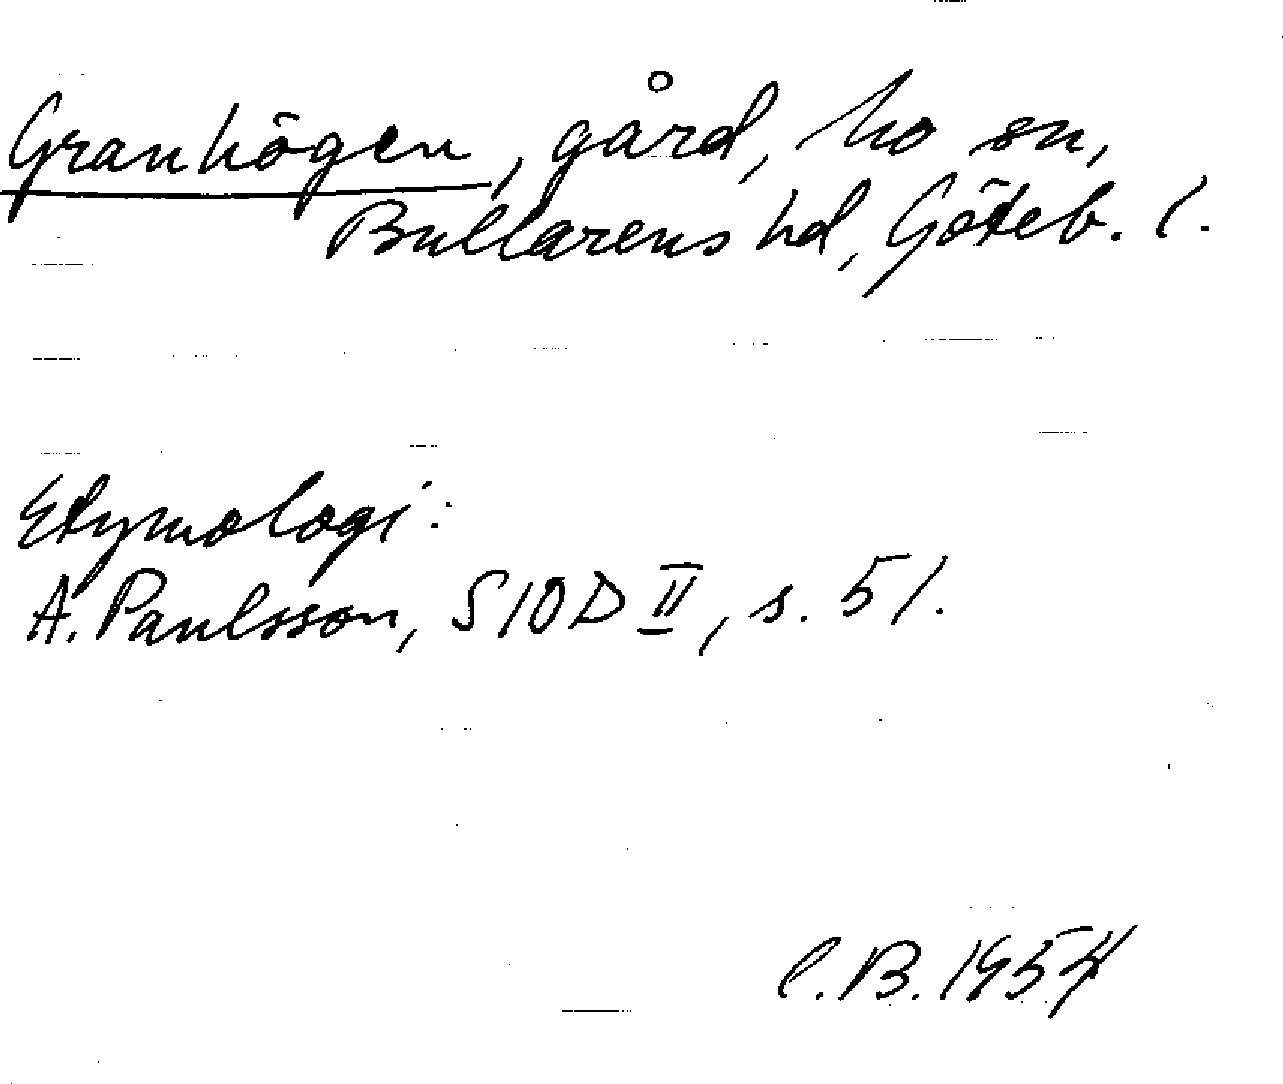 Granhögen, gård, Mo sn,
Bullarens hd, Göteb. l.
Etymologi:
A. Paulsson, SIOD II, s. 51.
C.B. 1954